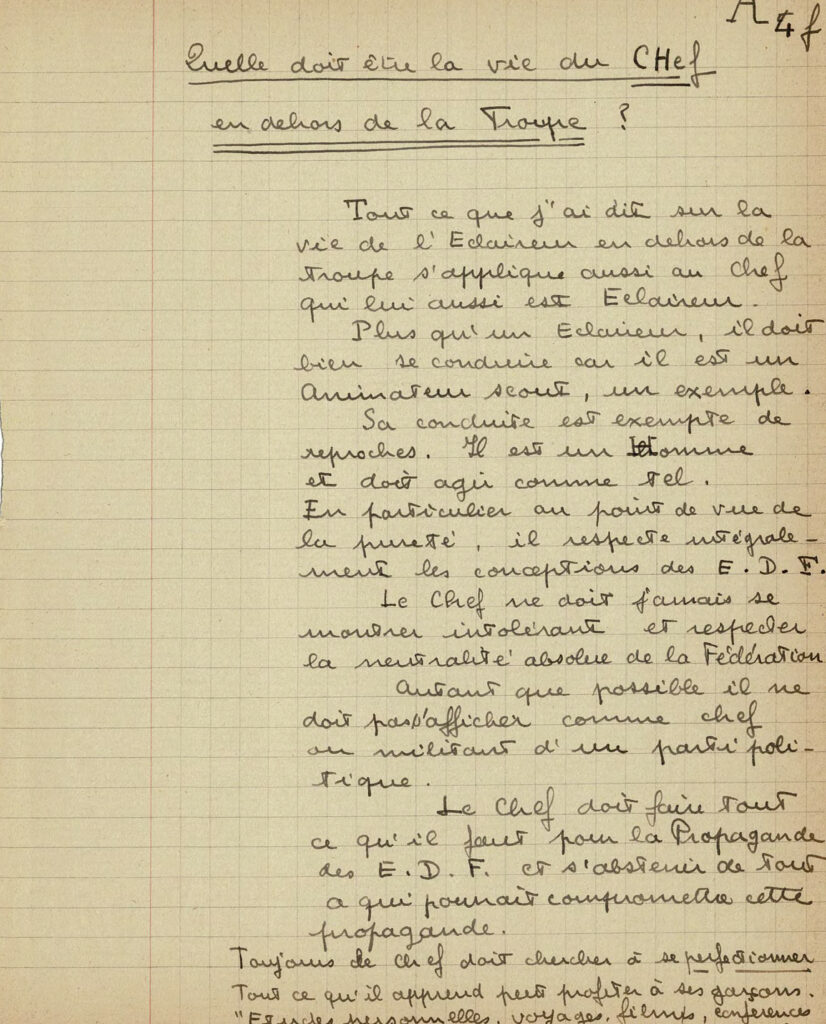 A4f
Quelle doit être la vie du CHef
en dehors de la Troupe ?
Tout ce que j'ai dit sur la
vie de l'Eclaireur en dehors de la
troupe s'applique aussi au Chef
qui lui aussi est Eclaireur.
Plus qu'un Eclaireur, il doit
bien se conduire car il est un
Animateur scout, un exemple.
Sa conduite est exempte de
reproches. Il est un Homme
et doit agir comme tel.
En particulier au point de vue de
la pureté, il respecte intégrale-
ment les conceptions des E.D.F.
Le Chef ne doit jamais se
montrer intolérant et respecter
la neutralité absolue de la Fédération
Autant que possible il ne
doit pas s'afficher comme chef
ou militant d'un parti poli-
tique.
Le Chef doit faire tout
ce qu'il faut pour la Propagande
des E.D.F. et s'abstenir de tout
ce qui pourrait compromettre cette
propagande.
Toujours le Chef doit chercher à se perfectionner
Tout ce qu'il apprend peut profiter à ses garçons.
"Etudes personnelles, voyages, films, conférences